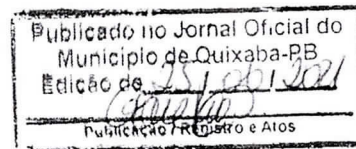 Publicado no Jornal Oficial do
Município de Quixaba-PB
Edição de 25 / 06 / 2021
Publicação / Registro e Atos